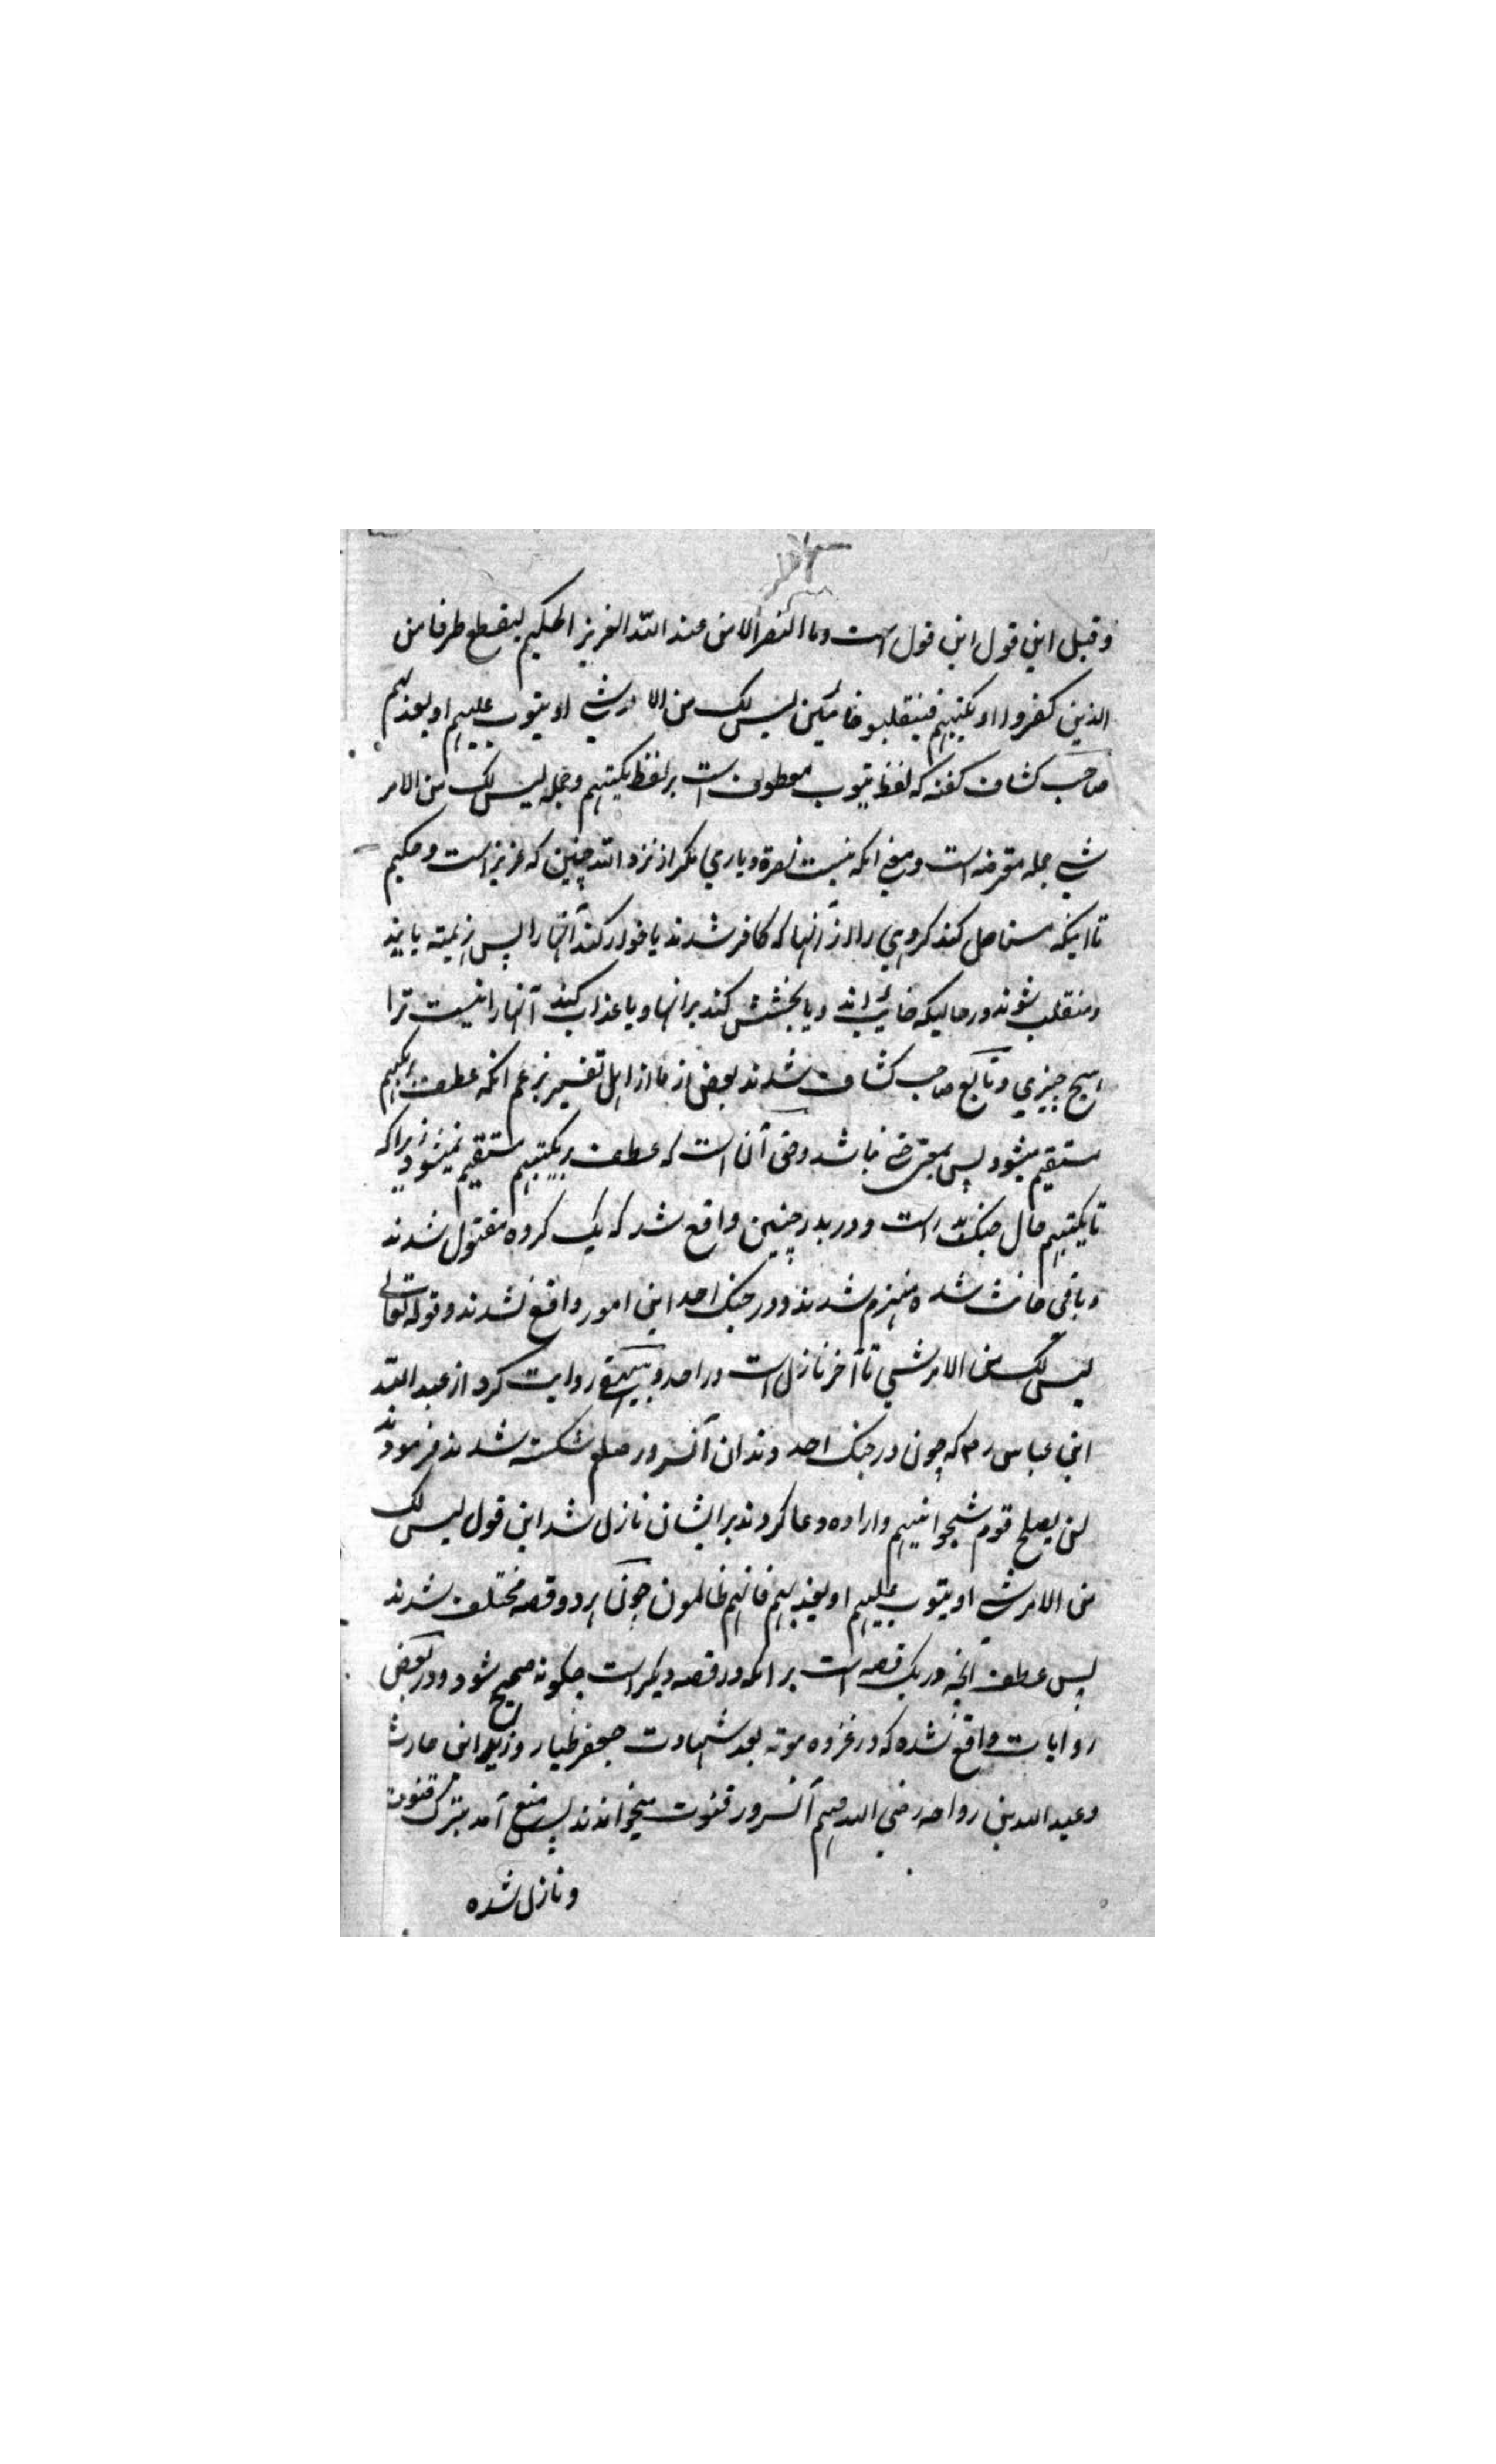 وقبل این قول این قول است وما النصر الا من عند الله العزیز الحکیم لیقطع طرفا من
الذین کفروا او یکبتهم فینقلبوا خائبین لیس لک من الامر شی او یتوب علیهم او یعذبهم
صاحب کشاف گفته که لفظ یتوب معطوف است بر لفظ یکبتهم وجمله لیس لک من الامر
شی جمله معترضه است ومعنی انکه نیست نصرة ویاری مگر از نزد الله چنین که عزیز است وحکیم
تا اینکه مستاصل کند گروهی را از آنها که کافر شدند یا خوار کند آنها را پس هزیمته یابند
ومنقلب شوند در حالیکه خائب اند ویا بخشش کند بر انها ویا عذاب کند آنها را نیست ترا
هیچ چیزی وتابع صاحب کشاف شدند بعض از ما از اهل تفسیر بزعم انکه عطف بر یکبتهم
مستقیم میشود پس بمعنی حتی نباشد وحق آن است که عطف بر یکبتهم مستقیم نمیشود زیراکه
تا یکبتهم حال جنگ بدر است ودر بدر چنین واقع شد که یک گروه مقتول شدند
وباقی خائب شده منهزم شدند ودر جنگ احد این امور واقع نشدند وقوله تعالی
لیس لک من الامر شی تا آخر نازل است در احد وبیهقی روایت کرد از عبد الله
ابن عباس رض که چون در جنگ احد دندان آنسرور صلعم شکسته شدند فرمودند
لن یصلح قوم شجوا نبیهم واراده دعا کردند بر ایشان نازل شد این قول لیس لک
من الامر شی او یتوب علیهم او یعذبهم فانهم ظالمون چون هر دو قصه مختلف شدند
پس عطف آنچه در یک قصه است بر انکه در قصه دیگر است چگونه صحیح شود ودر بعض
روایات واقع شده که در غزوه موته بعد شهادت جعفر طیار وزید ابن حارث
وعبد الله بن رواحه رضی الله عنهم آنسرور قنوت میخواندند پس منع آمد بترک قنوت
ونازل شده